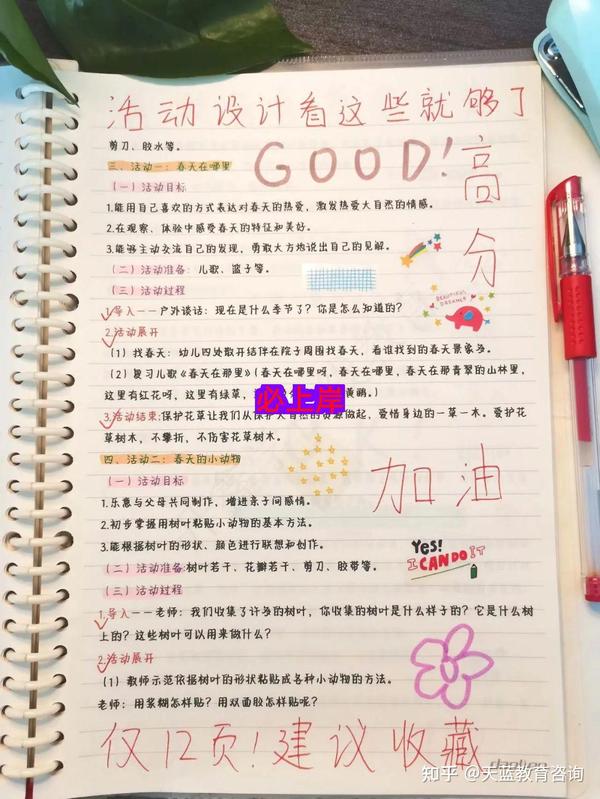 活动设计看这些就够了
剪刀、胶水等。
GOOD!
高分
三、活动一：春天在哪里
（一）活动目标
1.能用自己喜欢的方式表达对春天的热爱，激发热爱大自然的情感。
2.在观察、体验中感受春天的特征和美好。
3.能够主动交流自己的发现，勇敢大方地说出自己的见解。
（二）活动准备：儿歌、篮子等。
（三）活动过程
BEAUTIFUL DREAMER
1.导入——户外谈话：现在是什么季节了？你是怎么知道的？
2.活动展开
（1）找春天：幼儿四处散开结伴在院子周围找春天，看谁找到的春天景象多。
（2）复习儿歌《春天在那里》（春天在哪里呀，春天在哪里，春天在那青翠的山林里，
这里有红花呀，这里有绿草，
黄鹂。）
必上岸
3.活动结束：保护花草让我们从保护大自然的资源做起，爱惜身边的一草一木。爱护花
草树木，不攀折，不伤害花草树木。
四、活动二：春天的小动物
（一）活动目标
加油
1.乐意与父母共同制作，增进亲子间感情。
2.初步掌握用树叶粘贴小动物的基本方法。
3.能根据树叶的形状、颜色进行联想和创作。
YES!
I CAN DO IT
（二）活动准备：树叶若干、花瓣若干、剪刀、胶带等。
（三）活动过程
1.导入——老师：我们收集了许多的树叶，你收集的树叶是什么样子的？它是什么树
上的？这些树叶可以用来做什么？
2.活动展开
（1）教师示范依据树叶的形状粘贴成各种小动物的方法。
老师：用浆糊怎样贴？用双面胶怎样贴呢？
仅12页！建议收藏
知乎 @天蓝教育咨询